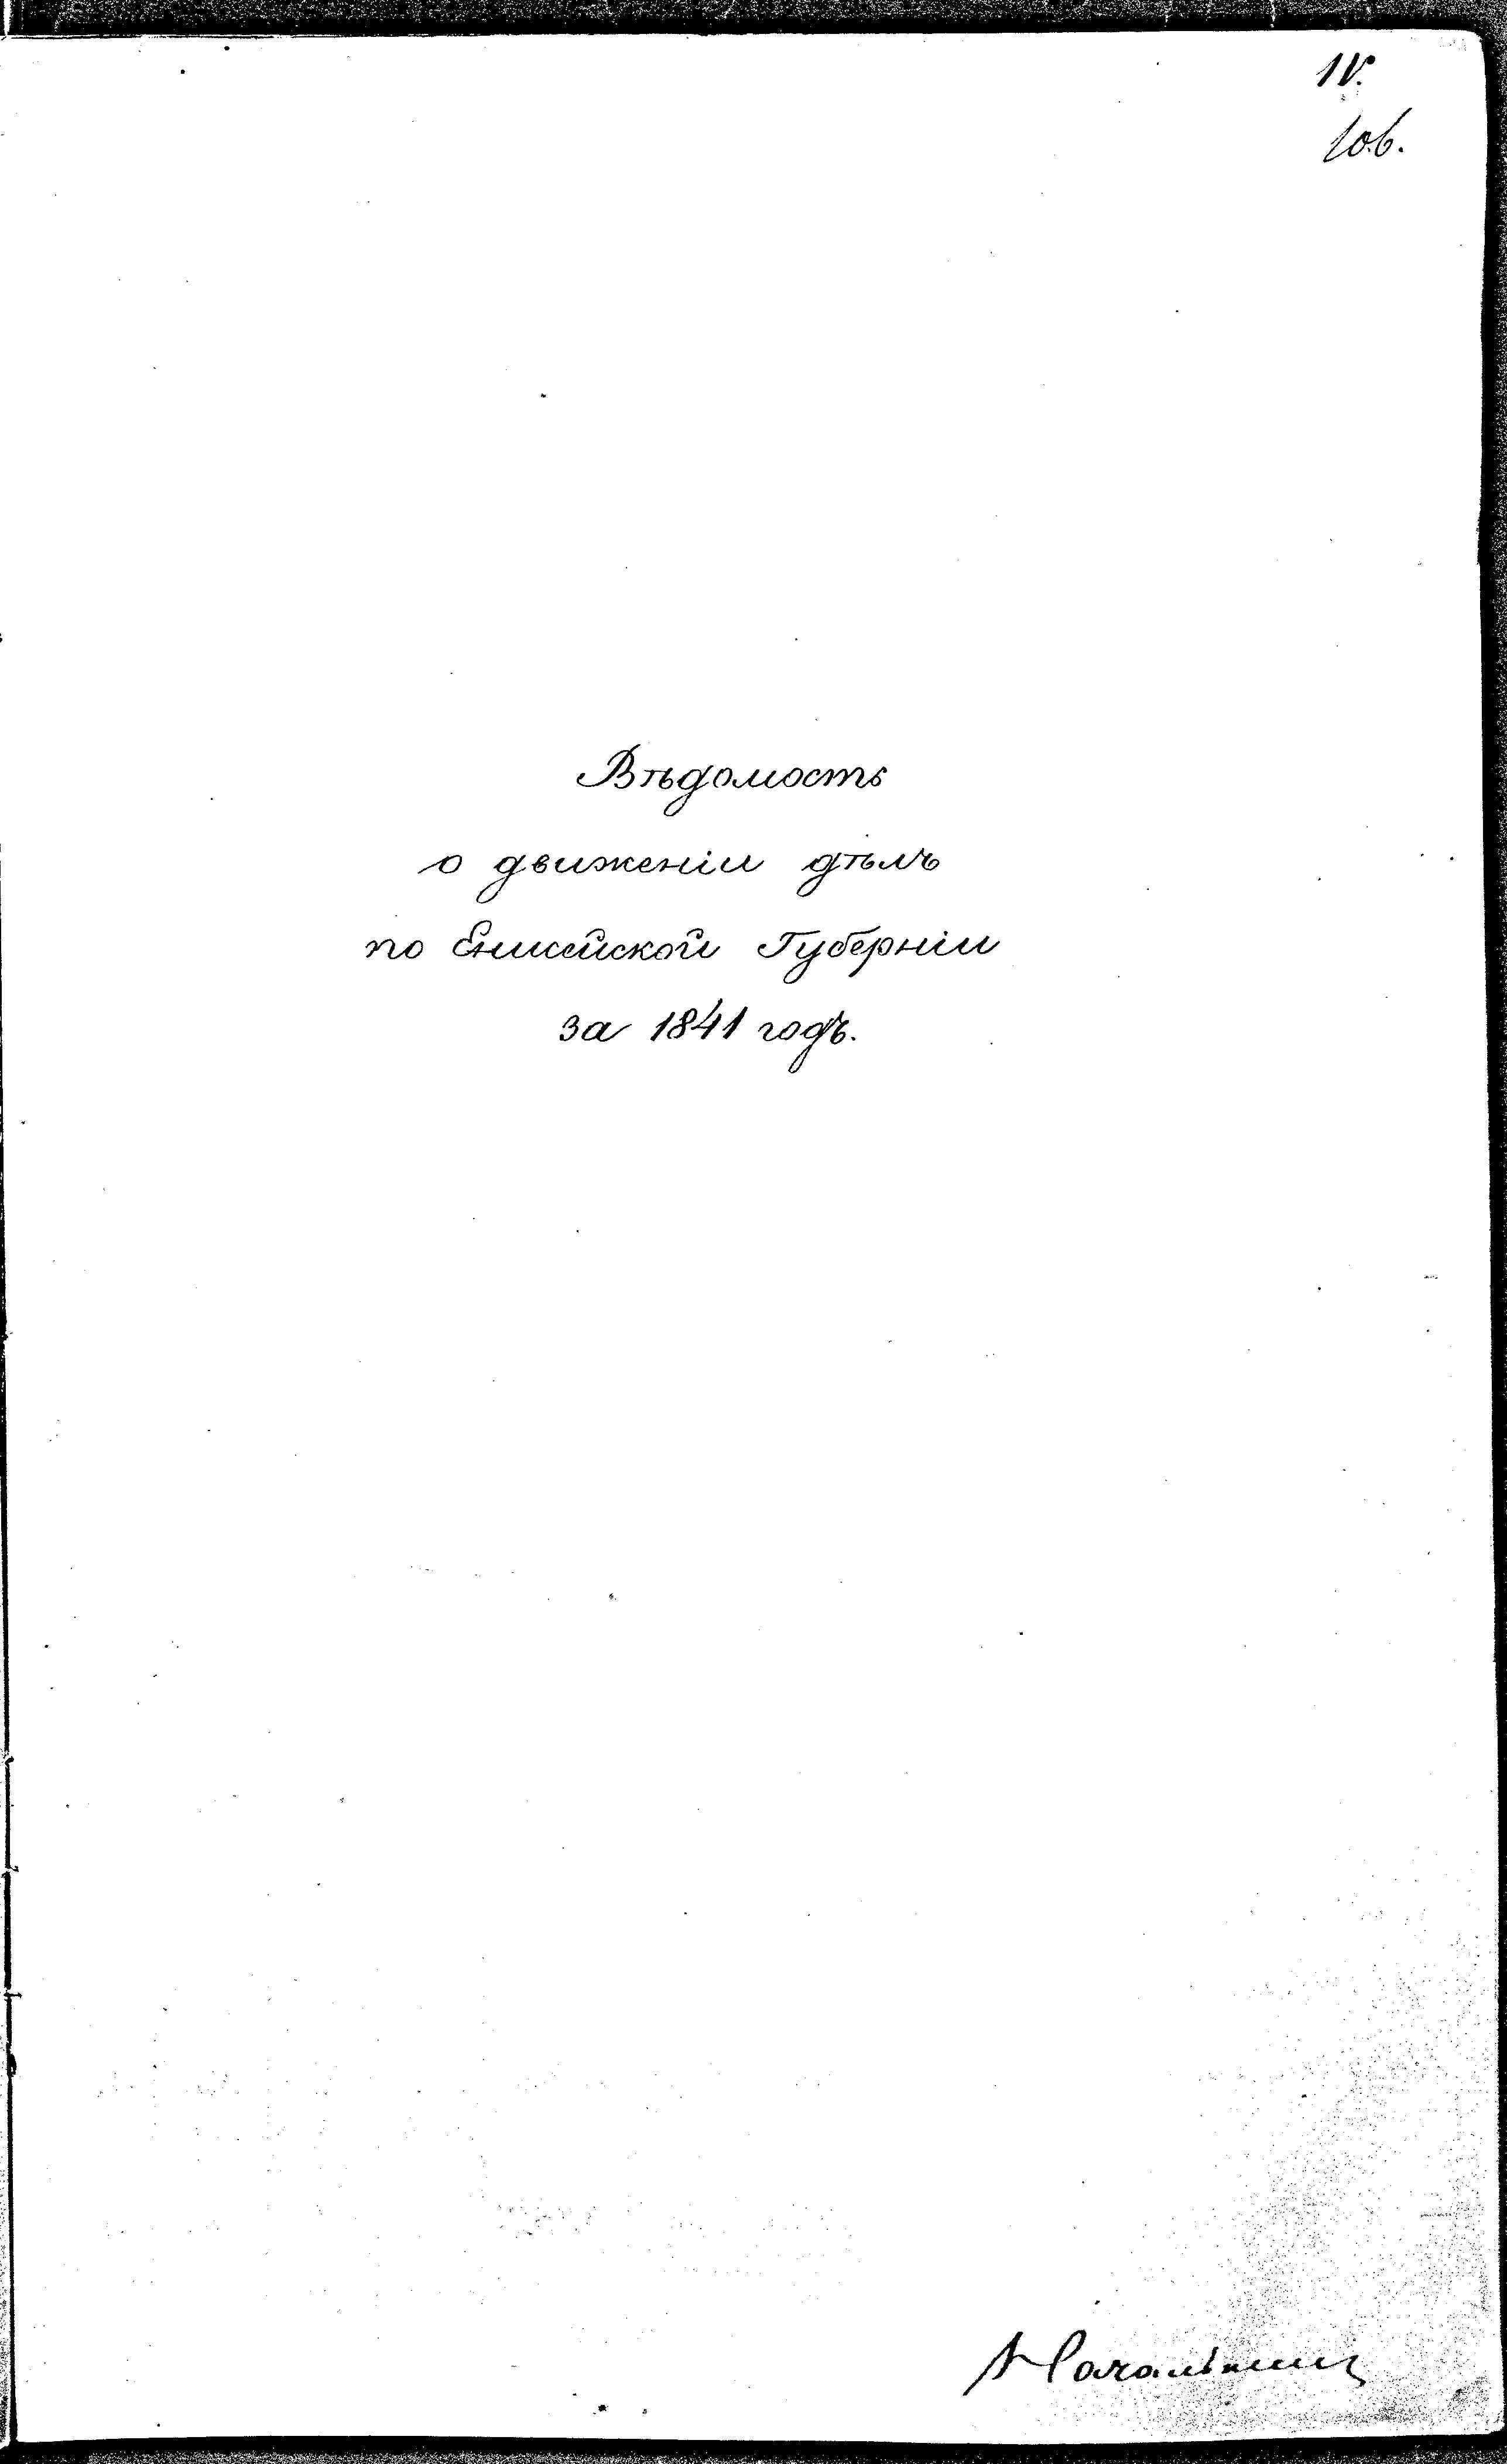 IV.
106.
Вѣдомость
о движеніи дѣлъ
по Енисейской Губерніи
за 1841 годъ.
Начальникъ